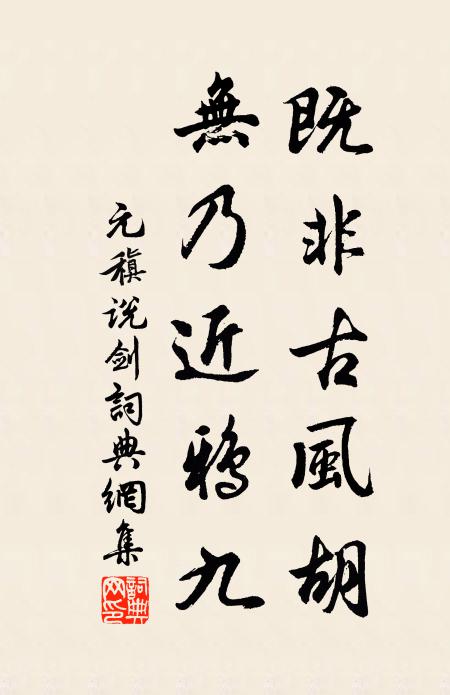 既非古風胡
無乃近鴉九
元稹说劍詞典網集
詞典
网印